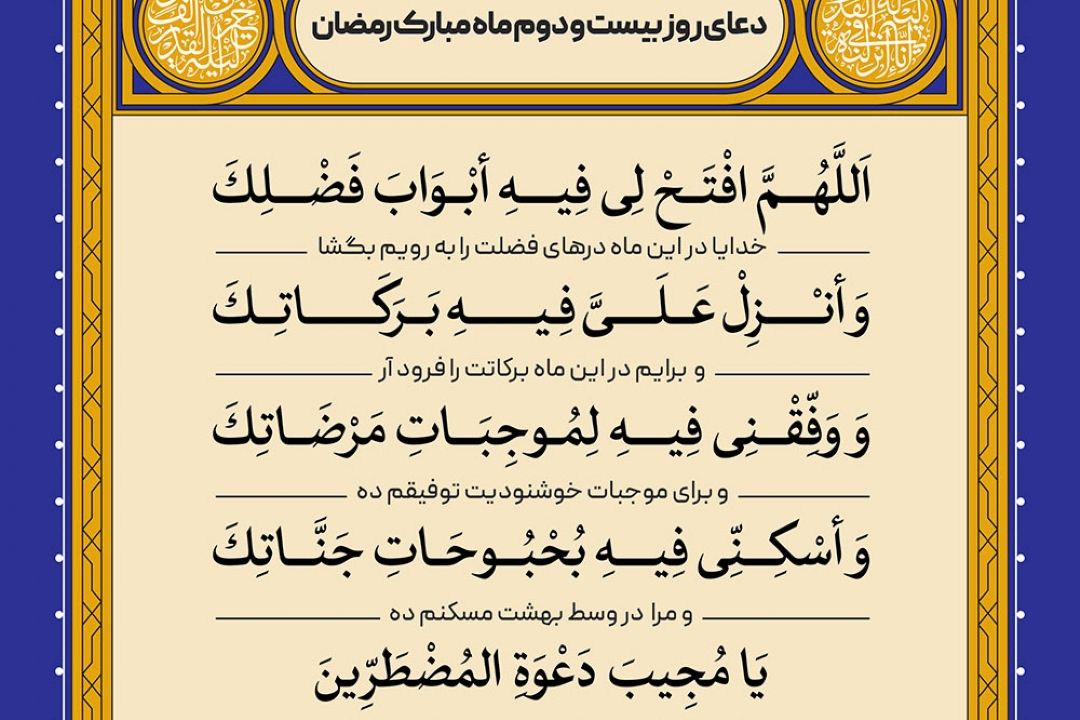 دعای روز بیست و دوم ماه مبارک رمضان
اَللَّهُمَّ افْتَحْ لِی فِیهِ أَبْوَابَ فَضْلِكَ
خدایا در این ماه درهای فضلت را به رویم بگشا
وَ أَنْزِلْ عَلَیَّ فِیهِ بَرَكَاتِكَ
و برایم در این ماه برکاتت را فرود آر
وَ وَفِّقْنِی فِیهِ لِمُوجِبَاتِ مَرْضَاتِكَ
و برای موجبات خوشنودیت توفیقم ده
وَ أَسْكِنِّی فِیهِ بُحْبُوحَاتِ جَنَّاتِكَ
و مرا در وسط بهشت مسکنم ده
یَا مُجِیبَ دَعْوَةِ الْمُضْطَرِّینَ